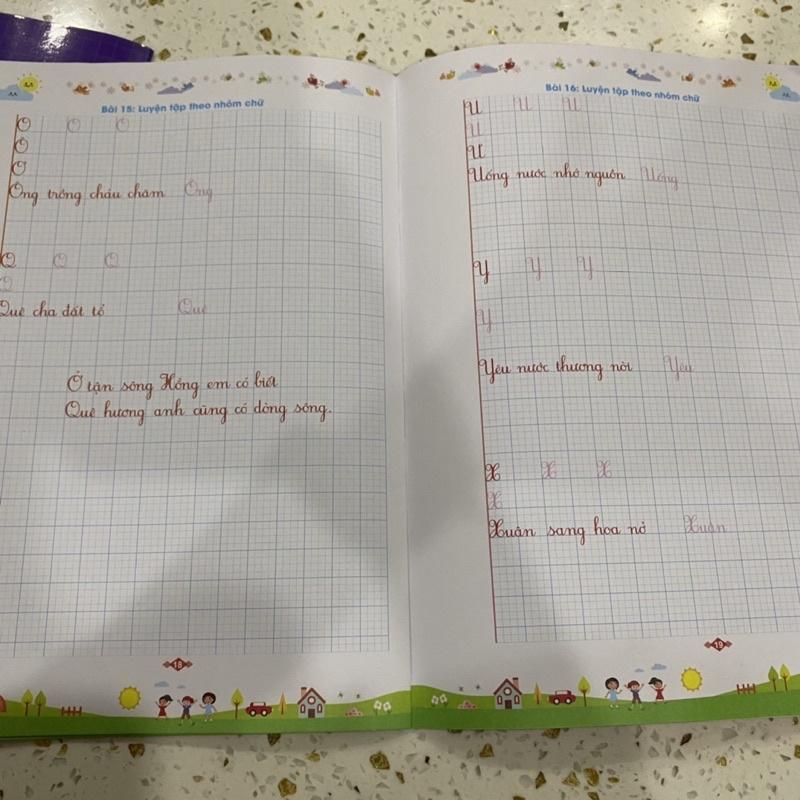 Bài 15: Luyện tập theo nhóm chữ
O O O
Ô
Ơ
Ông trồng cháu chăm Ông
Q Q Q
Q
Quê cha đất tổ Quê
Ở tận sông Hồng em có biết
Quê hương anh cũng có dòng sông.
18
Bài 16: Luyện tập theo nhóm chữ
U U U
U
Ư
Uống nước nhớ nguồn Uống
Y Y Y
Y
Yêu nước thương nòi Yêu
X X X
X
Xuân sang hoa nở Xuân
19